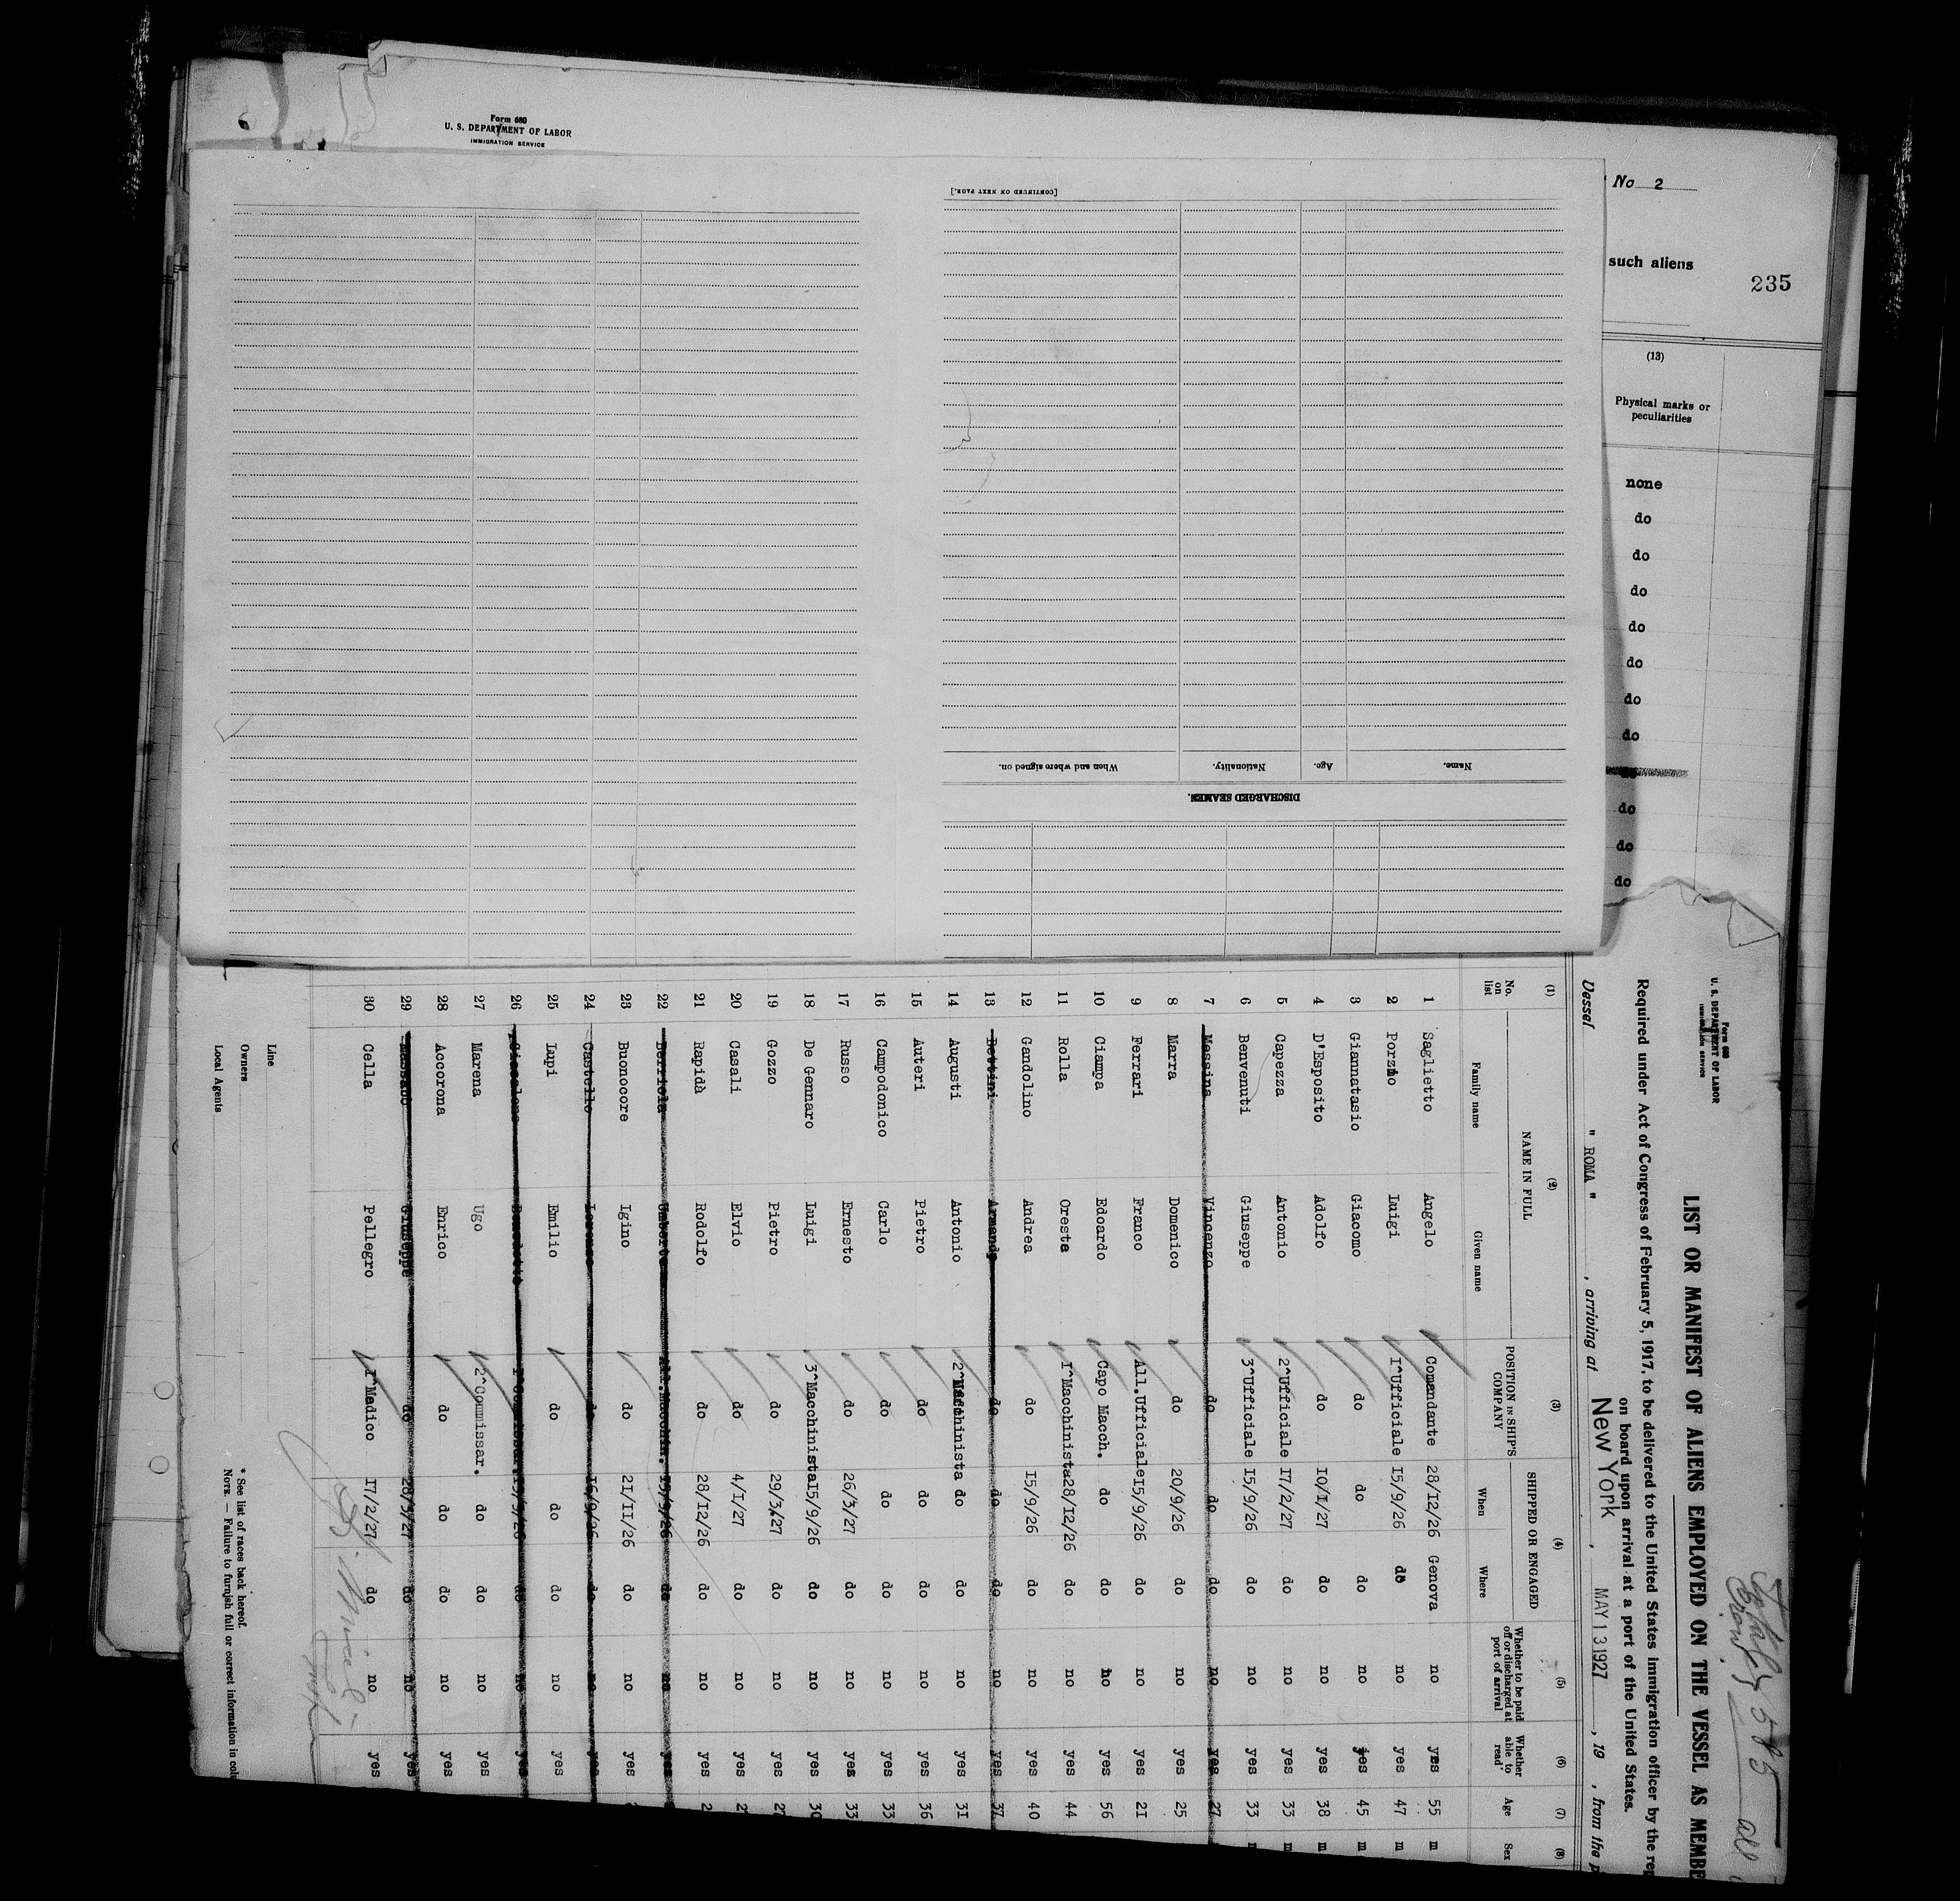 Form 680
U. S. DEPARTMENT OF LABOR
IMMIGRATION SERVICE
No 2
such aliens
235
(13)
Physical marks or
peculiarities
none
do
do
do
do
do
do
do
do
do
do
[CONTINUED ON NEXT PAGE.]
DISCHARGED SEAMEN.
Name. Age. Nationality. When and where signed on.
Form 680
U. S. DEPARTMENT OF LABOR
IMMIGRATION SERVICE
5585
all
LIST OR MANIFEST OF ALIENS EMPLOYED ON THE VESSEL AS MEMBE
Required under Act of Congress of February 5, 1917, to be delivered to the United States immigration officer by the rep
on board upon arrival at a port of the United States.
Vessel " ROMA " , arriving at New York , MAY 13 1927 , 19 , from the p
(1) (2) (3) (4) (5) (6) (7) (8)
No. on list NAME IN FULL POSITION IN SHIP'S COMPANY SHIPPED OR ENGAGED Whether to be paid off or discharged at port of arrival Whether able to read Age Sex
Family name Given name When Where
1 Saglietto Angelo Comandante 28/12/26 Genova no yes 55 m
2 Porzio Luigi I^Ufficiale 15/9/26 do no yes 47 m
3 Giannatasio Giacomo do do do no yes 45 m
4 D'Esposito Adolfo do 10/1/27 do no yes 38 m
5 Capezza Antonio 2^Ufficiale 17/2/27 do no yes 33 m
6 Benvenuti Giuseppe 3^Ufficiale 15/9/26 do no yes 33
7 Messina Vincenzo do do do no yes 27
8 Marra Domenico do 20/9/26 do no yes 25
9 Ferrari Franco All.Ufficiale 15/9/26 do no yes 21
10 Ciampa Edoardo Capo Macch. do do no yes 56
11 Rolla Oreste I^Macchinista 28/12/26 do no yes 44
12 Gandolino Andrea do 15/9/26 do no yes 40
13 Bettini Armando do do do no yes 37
14 Augusti Antonio 2^Macchinista do do no yes 31
15 Auteri Pietro do do do no yes 36
16 Campodonico Carlo do do do no yes 33
17 Russo Ernesto do 26/3/27 do no yes 33
18 De Gennaro Luigi 3^Macchinista 15/9/26 do no yes 30
19 Gozzo Pietro do 29/3/27 do no yes 27
20 Casali Elvio do 4/1/27 do no yes 2
21 Rapidà Rodolfo do 28/12/26 do no yes 2
22 Umberto All.Macchin. 15/9/26 do no yes
23 Buonocore Igino do 21/11/26 do no yes
24 Castello Lorenzo do 16/9/26 do no yes
25 Lupi Emilio do do do no yes
26 Giacalone Benedetto do no yes
27 Marena Ugo 2^Commissar. do do no yes
28 Accorona Enrico do do do no yes
29 Massabò Giuseppe do 28/3/27 do no yes
30 Cella Pellegro I^Medico 17/2/27 do no yes
Line
Owners
Local Agents
* See list of races on back hereof.
NOTE. — Failure to furnish full or correct information in colu